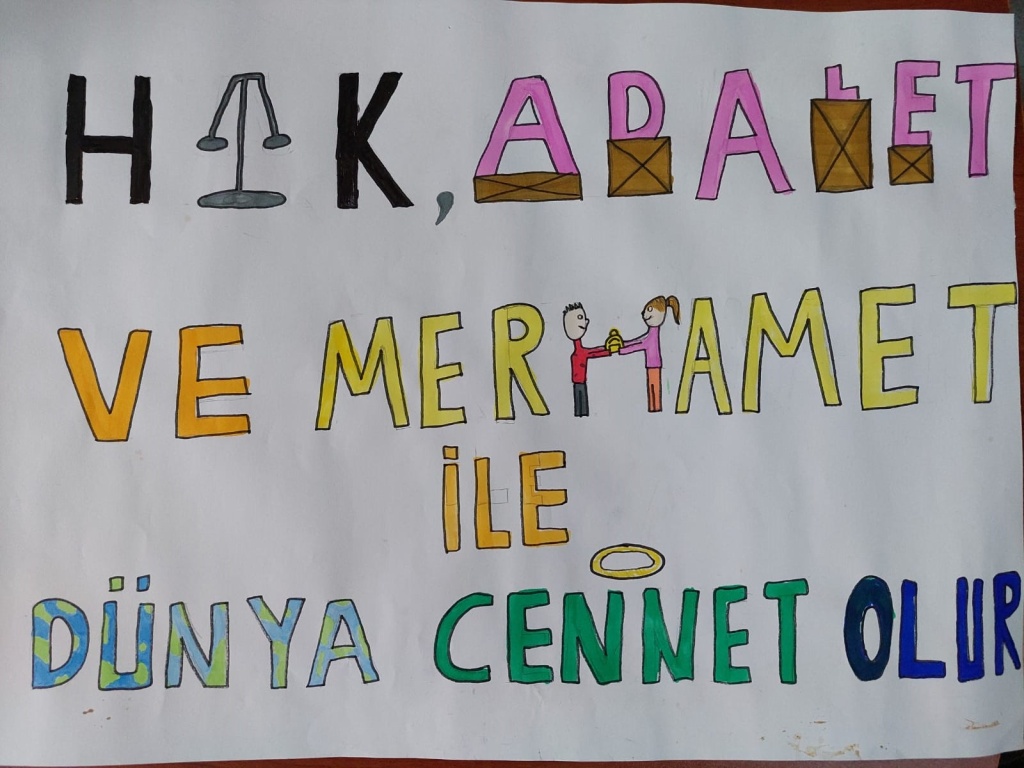 HAK, ADALET
VE MERHAMET
İLE
DÜNYA CENNET OLUR